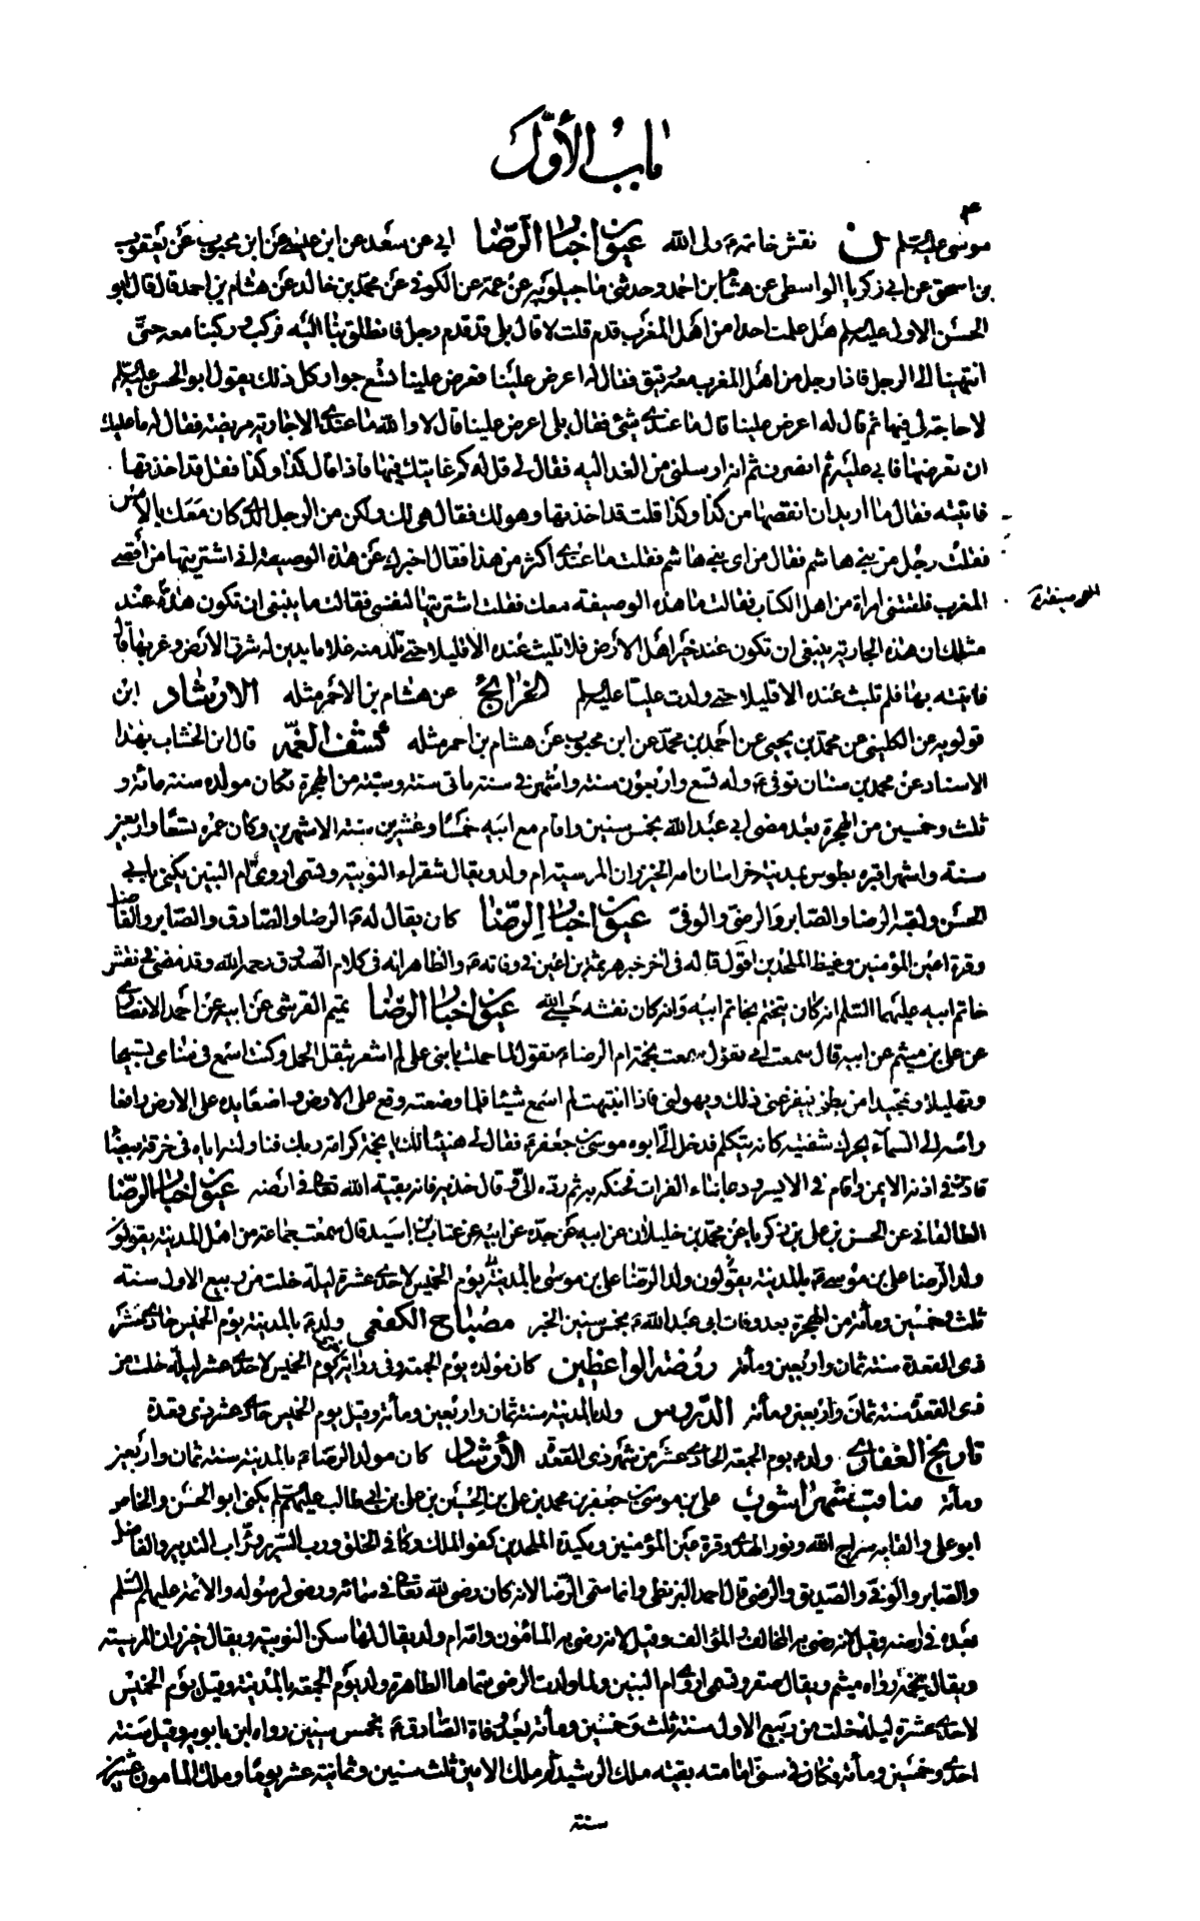 باب الأول
موسى عليه السلم ن نقش خاتمه ولى الله عيون اخبار الرضا ابي عن سعد عن ابن عيسى عن ابن محبوب عن يعقوب
بن اسحق عن ابي زكريا الواسطي عن هشام بن احمد وحدثني ماجيلويه عن عمه عن الكوفي عن محمد بن خالد عن هشام بن احمد قال قال ابو
الحسن الاول عليه السلم هل علمت احدا من اهل المغرب قدم قلت لا قال بلى قد قدم رجل فانطلق بنا اليه فركب وركبنا معه حتى
انتهينا الى الرجل فاذا رجل من اهل المغرب معه رقيق فقال له اعرض علينا فعرض علينا تسع جوار كل ذلك يقول ابو الحسن عليه السلم
لا حاجة لي فيها ثم قال له اعرض علينا قال ما عندي شئ فقال بلى اعرض علينا قال لا والله ما عندي الا جارية مريضة فقال له ما عليك
ان تعرضها فابى عليه ثم انصرف ثم انه ارسلني من الغد اليه فقال لي قل له كم غايتك فيها فاذا قال كذا وكذا فقل قد اخذتها
فاتيته فقال ما اريد ان انقصها من كذا وكذا قلت قد اخذتها وهو لك فقال هي لك ولكن من الرجل الذي كان معك بالامس
فقلت رجل من بني هاشم فقال من اي بني هاشم فقلت ما عندي اكثر من هذا فقال اخبرك عن هذه الوصيفة اني اشتريتها من اقصى
المغرب فلقتني امراة من اهل الكتاب فقالت ما هذه الوصيفة معك فقلت اشتريتها لنفسي فقالت ما ينبغي ان تكون هذه عند
مثلك ان هذه الجارية ينبغي ان تكون عند خير اهل الارض فلا تلبث عنده الا قليلا حتى تلد منه غلاما يدين له شرق الارض وغربها قال
فاتيته بها فلم تلبث عنده الا قليلا حتى ولدت عليا عليه السلم الخرائج عن هشام بن الاحمر مثله الارشاد ابن
قولويه عن الكليني عن محمد بن يحيى عن احمد بن محمد عن ابن محبوب عن هشام بن احمر مثله كشف الغمه قال ابن الخشاب بهذا
الاسناد عن محمد بن سنان توفي ع وله تسع واربعون سنة واشهر في سنة ماتى سنة وستة من الهجرة فكان مولده سنة مائة و
ثلث وخمسين من الهجرة بعد مضي ابي عبد الله بخمس سنين واقام مع ابيه خمسا وعشرين سنة الا شهرين وكان عمره تسعا واربعين
سنة واشهرا قبره بطوس بمدينة خراسان امه الخيزران المرسية ام ولد ويقال شقراء النوبية وتسمى اروى ام البنين يكنى بابي
الحسن ولقبه الرضا والصابر والرضي والوفي عيون اخبار الرضا كان يقال له ع الرضا والصادق والصابر والفاضل
وقرة اعين المؤمنين وغيظ الملحدين اقول قاله في اخر خبر هرثمة بن اعين في وفاته ع والظاهر انه في كلام الصدوق رحمه الله وقد مضى في نقش
خاتم ابيه عليهما السلم انه كان يتختم بخاتم ابيه وانه كان نقشه حسبي الله عيون اخبار الرضا تميم القرشي عن ابيه عن احمد الانصاري
عن علي بن ميثم عن ابيه قال سمعت امي تقول سمعت نجمة ام الرضا ع تقول لما حملت بابني علي لم اشعر بثقل الحمل وكنت اسمع في منامي تسبيحا
وتهليلا وتمجيدا من بطني فيفزعني ذلك ويهولني فاذا انتبهت لم اسمع شيئا فلما وضعته وقع على الارض واضعا يده على الارض رافعا
راسه الى السماء يحرك شفتيه كانه يتكلم فدخل الي ابوه موسى بن جعفر ع فقال لي هنيئا لك يا نجمة كرامة ربك فناولته اياه في خرقة بيضاء
فاذن في اذنه الايمن واقام في الايسر ودعا بماء الفرات فحنكه به ثم رده الي وقال خذيه فانه بقية الله تعالى في ارضه عيون اخبار الرضا
الطالقاني عن الحسن بن علي بن زكريا عن محمد بن خليلان عن ابيه عن جده عن ابيه عن عتاب بن اسيد قال سمعت جماعة من اهل المدينة يقولون
ولد الرضا علي بن موسى ع بالمدينة يقولون ولد الرضا علي بن موسى بالمدينة يوم الخميس لاحدى عشرة ليلة خلت من ربيع الاول سنة
ثلث وخمسين ومائة من الهجرة بعد وفات ابي عبد الله ع بخمس سنين الخبر مصباح الكفعمي ولد ع بالمدينة يوم الخميس حادي عشر
ذي القعدة سنة ثمان واربعين ومائة روضة الواعظين كان مولده يوم الجمعة وفي رواية اخرى يوم الخميس لاحدى عشر ليلة خلت من
ذي القعدة سنة ثمان واربعين ومائة الدروس ولد بالمدينة سنة ثمان واربعين ومائة وقيل يوم الخميس حادي عشر ذي قعدة
تاريخ الغفاري ولد ع يوم الجمعة الحادي عشر من شهر ذي القعدة الارشاد كان مولد الرضا ع بالمدينة سنة ثمان واربعين
ومائة مناقب شهراشوب علي بن موسى بن جعفر بن محمد بن علي بن الحسين بن علي بن ابي طالب عليهم السلم يكنى ابو الحسن والخاص
ابو علي والقابه سراج الله ونور الهدى وقرة عين المؤمنين ومكيدة الملحدين كفو الملك وكافي الخلق ورب السرير ورئاب التدبير والفاضل
والصابر والوفي والصديق والرضي قال احمد البزنطي وانما سمي الرضا لانه كان رضي لله تعالى في سمائه ورضي لرسوله والائمة عليهم السلم
بعده في ارضه وقيل لانه رضي به المخالف والمؤالف وقيل لانه رضي به المامون وامه ام ولد يقال لها سكن النوبية ويقال خيزران المرسية
ويقال نجمة رواه ميثم ويقال صقر وتسمى اروى ام البنين ولما ولدت الرضي سماها الطاهرة ولد يوم الجمعة بالمدينة وقيل يوم الخميس
لاحدى عشرة ليلة خلت من ربيع الاول سنة ثلث وخمسين ومائة بعد وفاة الصادق ع بخمس سنين رواه ابن بابويه وقيل سنة
احدى وخمسين ومائة فكان في سني امامته بقية ملك الرشيد ثم ملك الامين ثلث سنين وثمانية عشر يوما وملك المامون عشرين
سنة